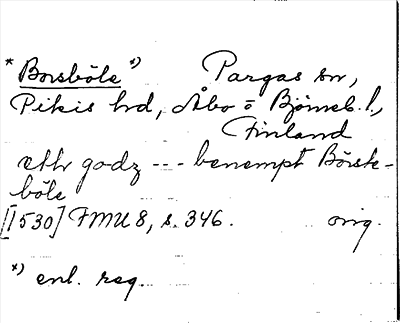 * Borsböle *) Pargas sn,
Pikis hd, Åbo o Björneb. l.,
Finland
ett godz --- benempt Börste-
böle
[1530] FMU 8, s. 346. orig.
*) enl. reg.